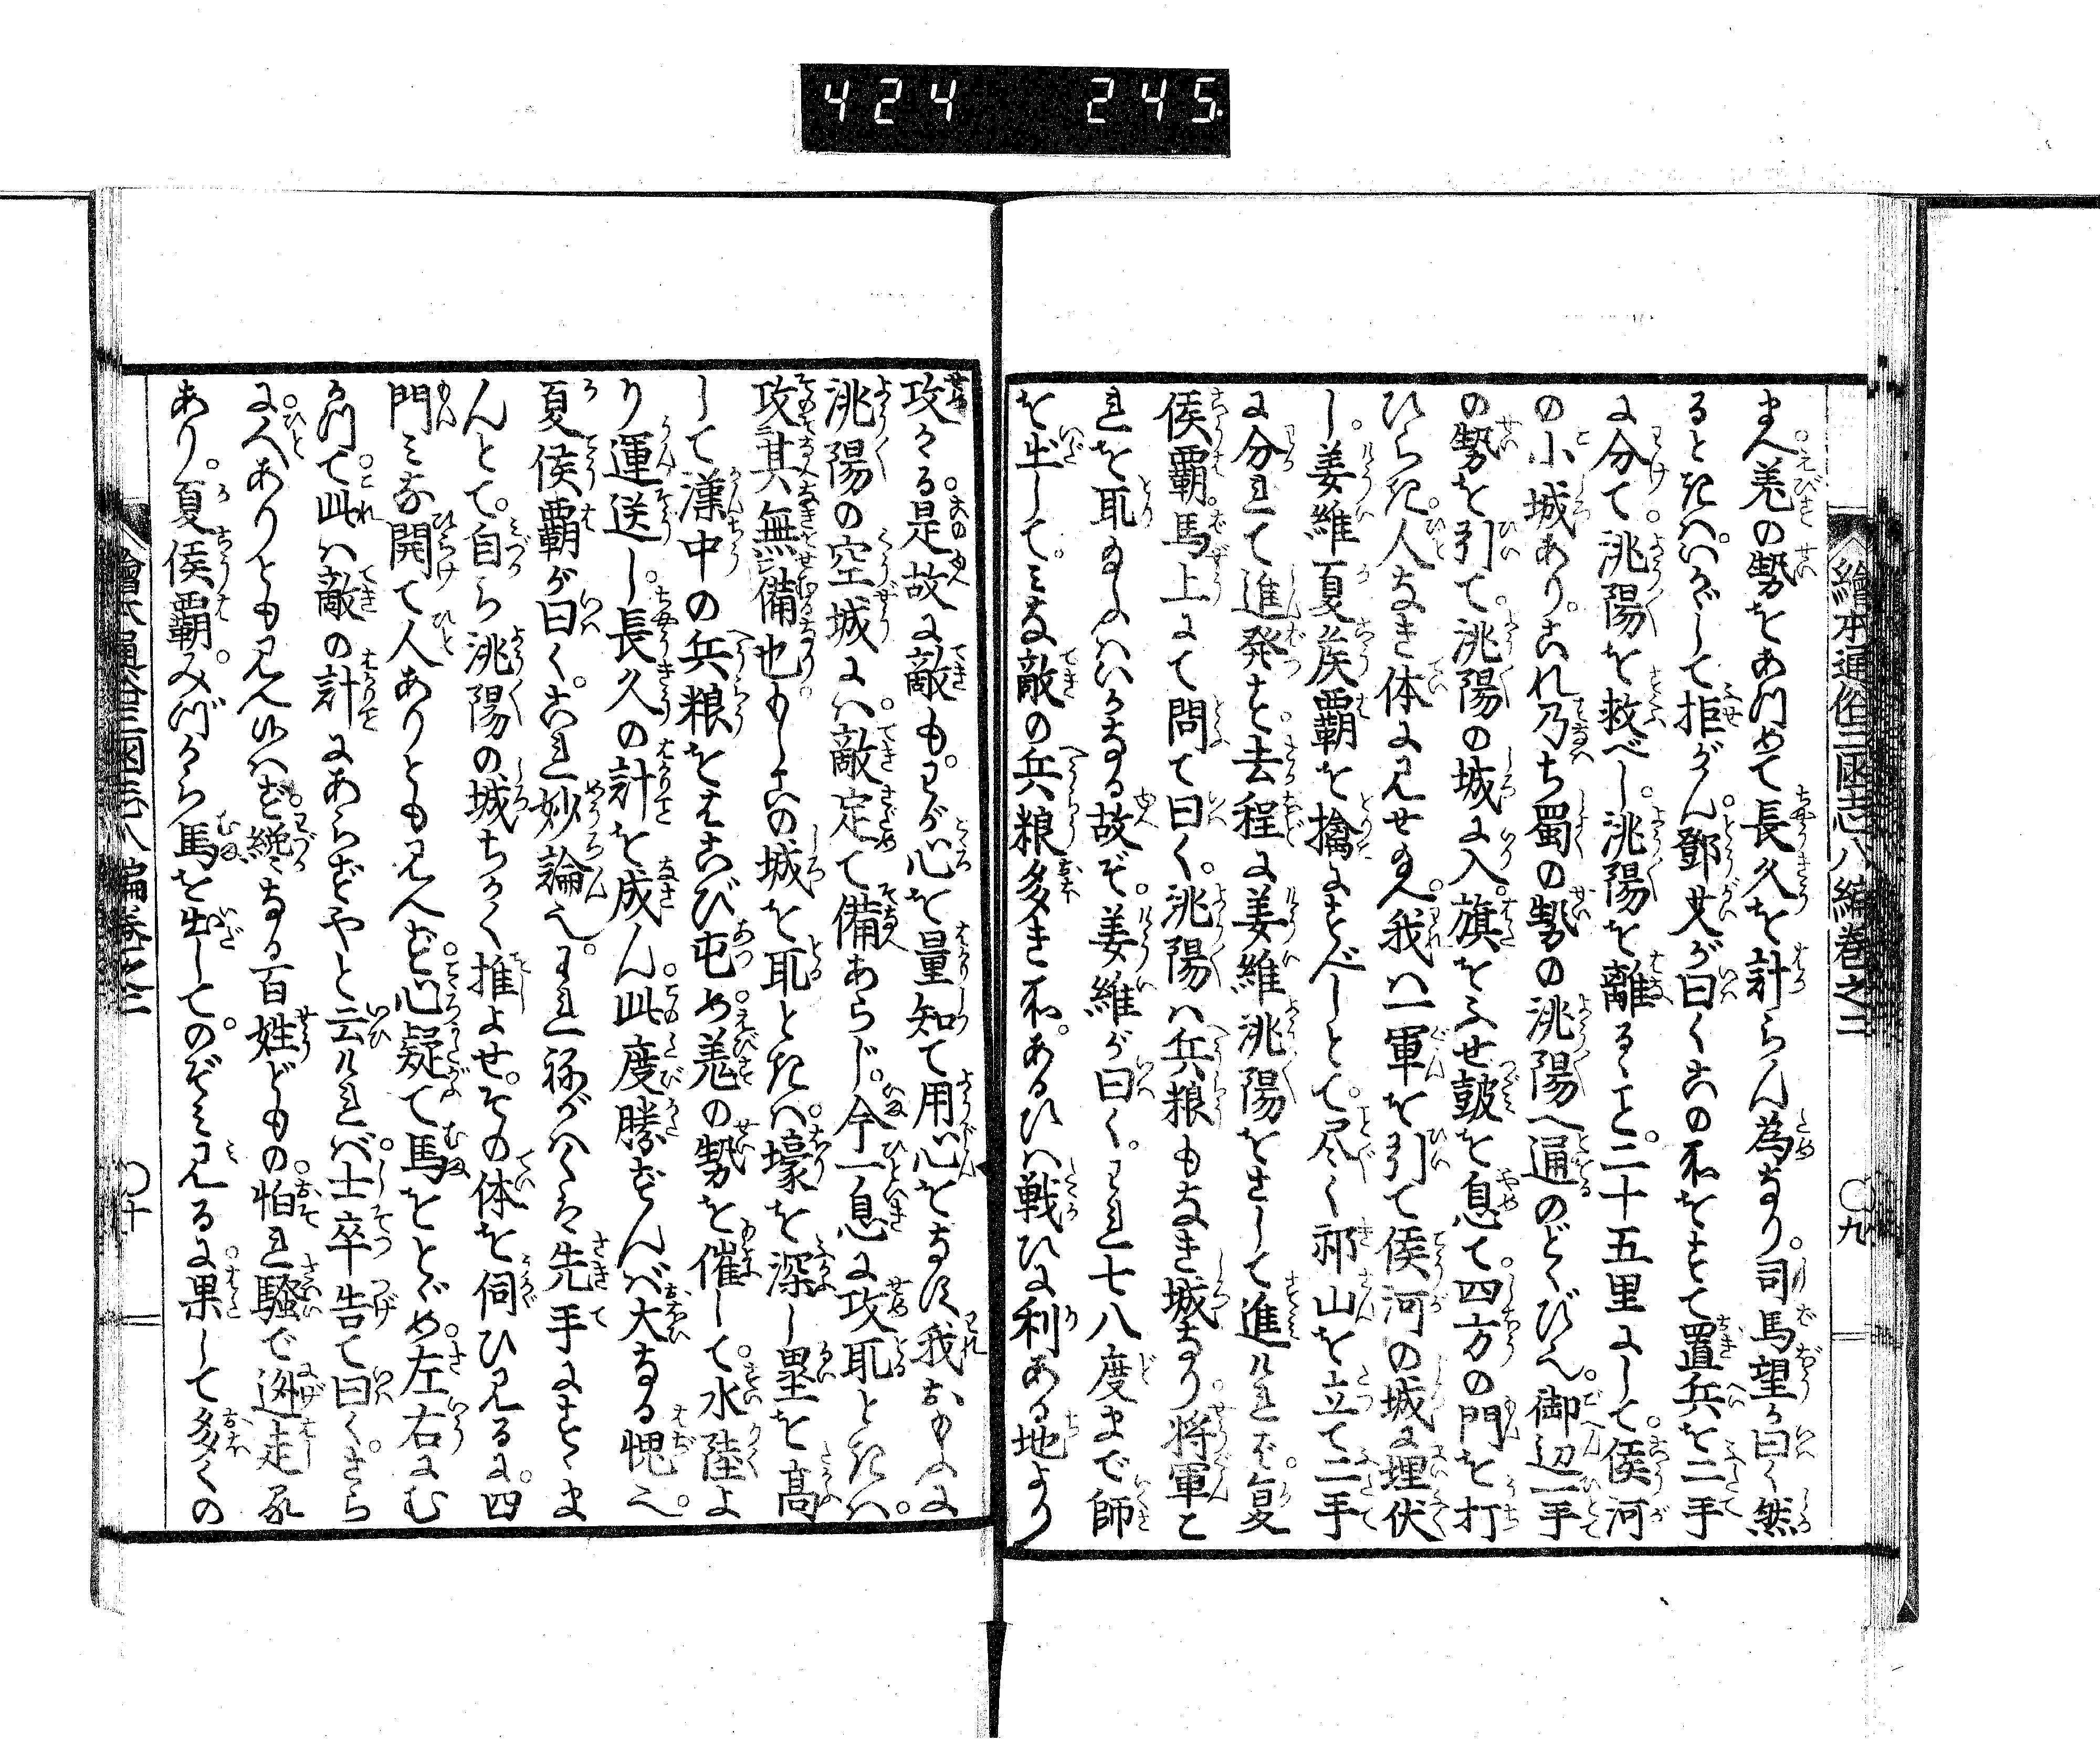 424 245.
繪本通俗三國志八編巻之二 〇九
まへ羌の勢をあつめて長久を計らん為なり。司馬望が曰く然
るときハ。いかゞして拒がん鄧艾が曰くこの所をすてゝ置兵を二手
に分て。洮陽を救べし。洮陽を離るゝこと。二十五里にして。侯河
の小城あり。これ乃ち蜀の勢の洮陽へ通のどくびへ。御辺一手
の勢を引て。洮陽の城に入。旗をふせ鼓を息て。四方の門を打
ひらき。人なき体に見せ給へ。我ハ一軍を引て侯河の城に埋伏
し。姜維夏侯覇を擒にすべしとて。尽く祁山を立て二手
に分れて進発す。去程に姜維洮陽をさして進けれバ。夏
侯覇。馬上にて問て曰く。洮陽ハ兵粮もなき城なり。将軍こ
れを取給ふハいかなる故ぞ。姜維が曰く。われ七八度まで師
を出して。みな敵の兵粮多き所。あるひハ戦ひに利ある地より
攻ける是故に敵も。わが心を量知て用心をなす。我おもふに
洮陽の空城にハ。敵定て備あらじ。今一息に攻取ときハ。
攻其無備也もしこの城を取ときハ。壕を深し塁を高
して漢中の兵粮をはこび屯め。羌の勢を催して。水陸よ
り運送し。長久の計を成ん。此度勝ずんバ大なる愧へ。
夏侯覇が曰く。これ妙論へ。われ祢がハくハ先手にすゝま
んとて。自ら洮陽の城ちかく推よせ。その体を伺ひ見るに。四
門みな開て人ありとも見へず。心疑て馬をとゞめ。左右にむ
かつて。此ハ敵の計にあらずやと云けれバ。士卒告て曰く。さら
に人ありとも見へ候ハず。纔なる百姓どもの。怕れ騒で迯走る
あり。夏侯覇。みづから馬を出して。のぞみ見るに。果して多くの
繪本通俗三國志八編巻之二 〇十